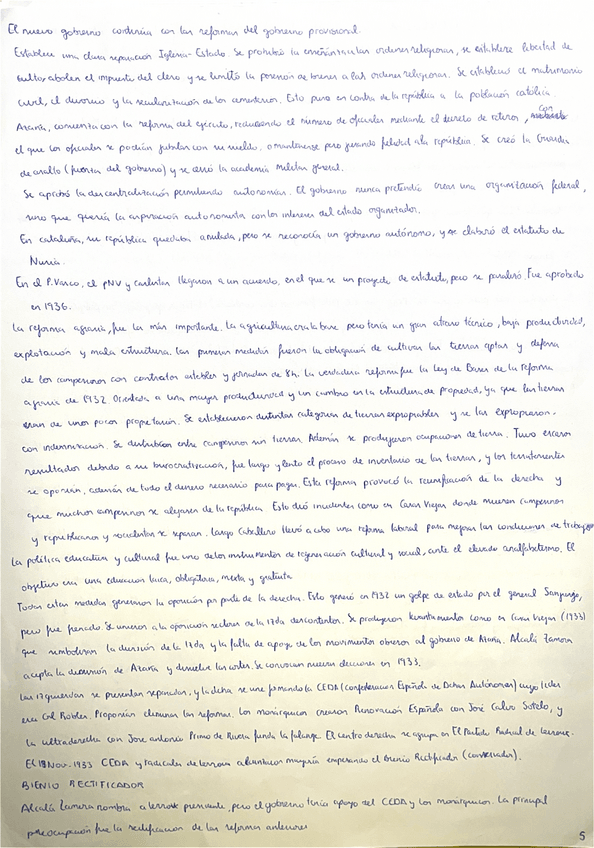 El nuevo gobierno continúa con las reformas del gobierno provisional.
Establece una clara separación Iglesia-Estado. Se prohibió la enseñanza a las ordenes religiosas, se establece libertad de
culto, abolen el impuesto del clero y se limitó la posesión de bienes a las ordenes religiosas. Se estableció el matrimonio
civil, el divorcio y la secularización de los cementerios. Esto puso en contra de la república a la población católica.
Azaña, comienza con la reforma del ejército, reduciendo el número de oficiales mediante el decreto de retiros, con
el que los oficiales se podían jubilar con su sueldo o mantenerse pero jurando felidad a la república. Se creó la Guardia
de asalto (fuerza del gobierno) y se cerró la academia militar general.
Se aprobó la descentralización permitiendo autonomías. El gobierno nunca pretendió crear una organización federal,
sino que quería la autonomista con los intereses del estado organizador.
En cataluña, su república quedaba anulada, pero se reconocía un gobierno autónomo, y se elaboró el estatuto de
Nuria.
En el P. Vasco, el PNV y carlistas llegaron a un acuerdo, en el que se un proyecto de estatuto, pero se paralizó. Fue aprobado
en 1936.
La reforma agraria, fue la más importante. La agricultura era la base pero tenía un gran atraso técnico, baja productividad,
explotación y mala estructura. Las primeras medidas fueron la obligación de cultivar las tierras aptas y defensa
de los campesinos con contratos estables y jornadas de 8h. La verdadera reforma fue la Ley de Bases de la reforma
agraria de 1932. Orientada a una mayor productividad y un cambio en la estructura de propiedad, ya que las tierras
eran de unos pocos propietarios. Se establecieron distintas categorías de tierras expropiables y se las expropiaron
con indemnización. Se distribuían entre campesinos sin tierras. Además se produjeron ocupaciones de tierra. Tuvo escasos
resultados debido a su burocratización, fue largo y lento el proceso de inventario de las tierras, y los terratenientes
se oponían, además de todo el dinero necesario para pagar. Esta reforma provocó la reunificación de la derecha y
que muchos campesinos se alejaran de la república. Esto dió incidentes como en Casas Viejas donde mueren campesinos
y republicanos y socialistas se separan. Largo Caballero llevó a cabo una reforma laboral para mejorar las condiciones de trabajo
La política educativa y cultural fue uno de los instrumentos de regeneración cultural y social, ante el elevado analfabetismo. El
objetivo era una educación laica, obligatoria, mixta y gratuita
Todas estas medidas generaron la oposición por parte de la derecha. Esto generó en 1932 un golpe de estado por el general Sanjurjo,
pero fue frenado. Se unieron a la oposición sectores de la izda descontentos. Se produjeron levantamientos como en Casas Viejas (1933)
que simbolizan la división de la izda y la falta de apoyo de los movimientos obreros al gobierno de Azaña. Alcalá Zamora
acepta la dimisión de Azaña y disuelve las cortes. Se convocan nuevas elecciones en 1933.
Las izquierdas se presentan separadas, y la dcha se une formando la CEDA (confederación Española de Dchas Autónomas) cuyo líder
era Gil Robles. Proponían eliminar las reformas. Los monárquicos crearon Renovación Española con José Calvo Sotelo, y
la ultraderecha con Jose antonio Primo de Rivera funda la falange. El centro derecha se agrupa en El Partido Radical de Lerroux.
El 19 Nov. 1933 CEDA y radicales de Lerroux alcanzaron mayoría empezando el bienio Rectificador (conservador).
BIENIO RECTIFICADOR
Alcalá Zamora nombra a Lerroux presidente, pero el gobierno tenía apoyo del CEDA y los monárquicos. La principal
preocupación fue la rectificación de las reformas anteriores
5